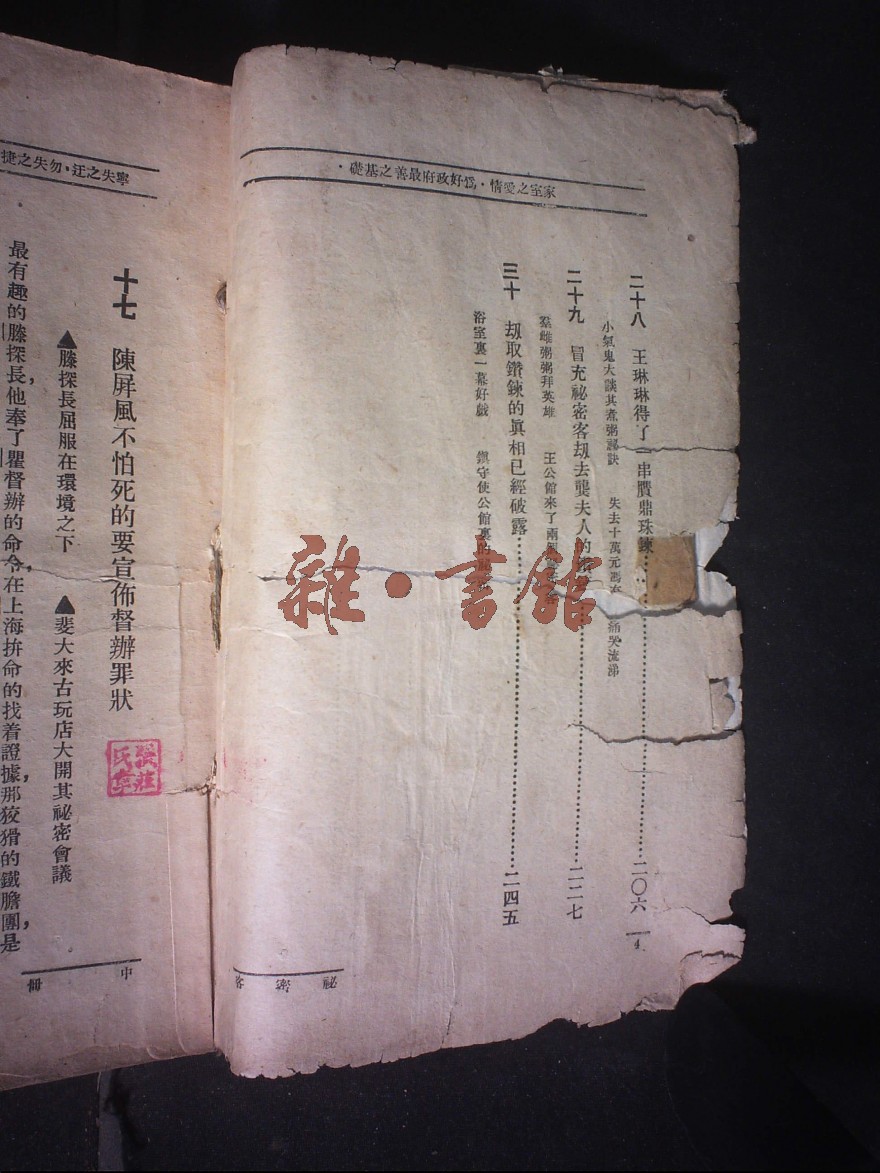 家室之愛情·爲好政府最善之基礎·
二十八 王琳琳得了一串贋鼎珠鍊……二〇六
小氣鬼大談其煮粥祕訣 失去十萬元馮 痛哭流涕
二十九 冒充祕密客刧去龔夫人的 ……二二七
羣雌粥粥拜英雄 王公館來了兩
三十 刧取鑽鍊的眞相已經破露……二四五
浴室裏一幕好戲 鎭守使公館裏的
4
祕密客
寧失之迂，勿失之捷
十七 陳屏風不怕死的要宣佈督辦罪狀
▲滕探長屈服在環境之下 ▲斐大來古玩店大開其祕密會議
最有趣的滕探長，他奉了瞿督辦的命令，在上海拚命的找着證據，那狡猾的鐵膽團，是
中冊
雜·書館
張莊氏